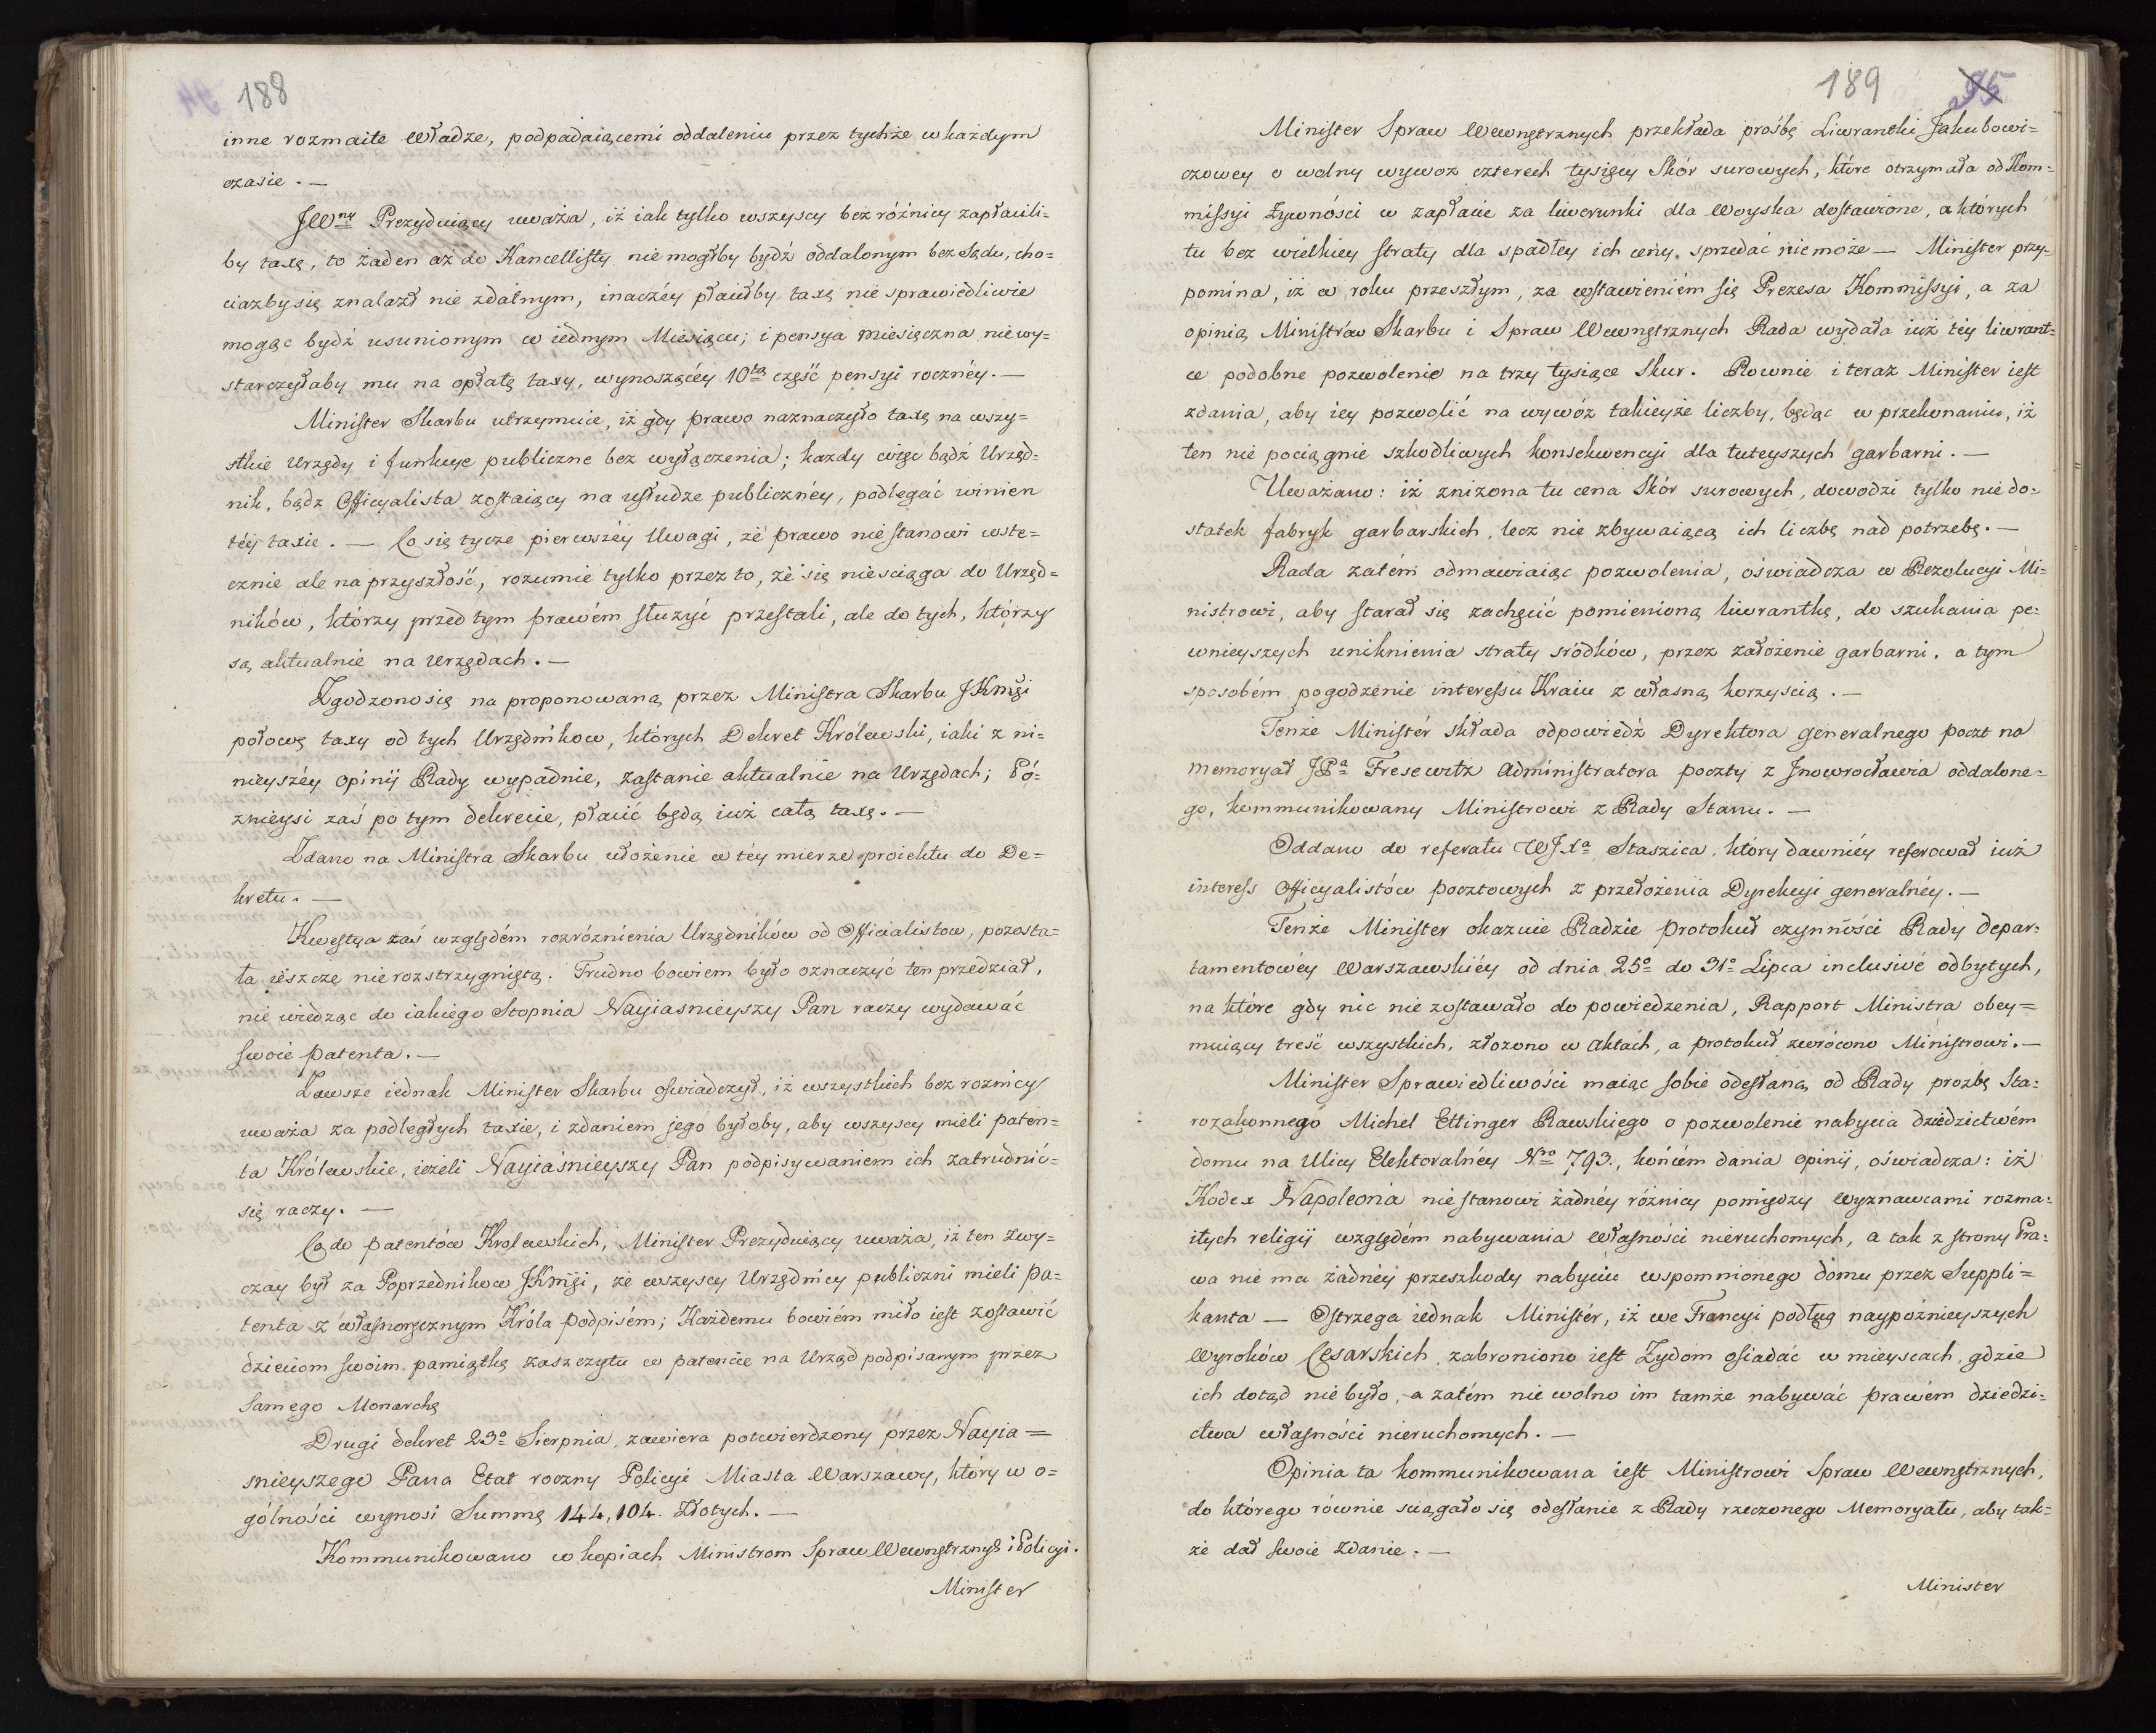 188
inne rozmaite Władze, podpadaiącemi oddaleniu przez tychże w każdym
czasie. —
JW<sup>ny</sup> Prezyduiący uważa, iż iak tylko wszyscy bez różnicy zapłacili=
by taxę, to żaden aż do Kancellisty nie mogłby bydź oddalonym bez Sądu, cho=
ciazby się znalazł nie zdatnym, inaczéy płaciłby taxę nie sprawiedliwie
mogąc bydź usunionym w iednym Miesiącu; i pensya miesięczna nie wy=
starczyłaby mu na opłatę taxy, wynoszącéy 10<sup>tą</sup> część pensyi rocznéy. —
Minister Skarbu utrzymuie, iż gdy prawo naznaczyło taxę na wszy=
stkie Urzędy i funkcye publiczne bez wyłączenia; każdy więc bądź Urzęd=
nik, bądz Officyalista zostaiący na usłudze publicznéy, podlegać winien
téy taxie. — Co się tycze pierwszéy Uwagi, że prawo nie stanowi wste=
cznie ale na przyszłość, rozumie tylko przez to, że się nie sciąga do Urzęd=
ników, którzy przed tym prawém służyć przestali, ale do tych, którzy
są aktualnie na Urzędach. —
Zgodzono się na proponowaną przez Ministra Skarbu JKmści
połowę taxy od tych Urzędnikow, których Dekret Królewski, iaki z ni=
nieyszéy opinij Rady wypadnie, zastanie aktualnie na Urzędach; Pó=
znieysi zaś po tym dekrecie, płacić będą iuż całą taxę. —
Zdano na Ministra Skarbu ułożenie w téy mierze proiektu do De=
kretu. —
Kwestya zaś względém rozróznienia Urzędników od Officialistow, pozosta=
ła ieszcze nierozstrzygniętą. Trudno bowiem było oznaczyć ten przedział,
nie wiedząc do iakiego Stopnia Nayiasnieyszy Pan raczy wydawać
swoie patenta. —
Zawsze iednak Minister Skarbu oswiadczył, iż wszystkich bez roznicy
uważa za podległych taxie, i zdaniem jego byłoby, aby wszyscy mieli paten=
ta Królewskie, ieżeli Nayiaśnieyszy Pan podpisywaniem ich zatrudnić
się raczy. —
Co do patentów Krolewskich, Minister Prezyduiący uważa, iż ten zwy=
czay był za Poprzednikow JKmści, że wszyscy Urzędnicy publiczni mieli pa=
tenta z własnoręcznym Króla podpisém; Każdemu bowiém miło iest zostawić
dzieciom swoim pamiątkę zaszczytu w patencie na Urząd podpisanym przez
samego Monarchę
Drugi dekret 23º Sierpnia, zawiera potwierdzony przez Nayia=
snieyszego Pana Etat roczny Policyi Miasta Warszawy, który w o=
gólności wynosi Summę 144,104. Złotych. —
Kommunikowano w kopiach Ministrom Spraw Wewnętrznych i Policyi.
Minister
189
95
Minister Spraw Wewnętrznych przekłada prośbę Liwrantki Jakubowi=
czowey o wolny wywoz czterech tysięcy Skór surowych, które otrzymała od Kom=
missyi Zywności w zapłacie za liwerunki dla Woyska dostawione, a których
tu bez wielkiey straty dla spadłey ich ceny, sprzedać nie może — Minister przy=
pomina, iż w roku przeszłym, za wstawieniém się Prezesa Kommissyi, a za
opinią Ministrów Skarbu i Spraw Wewnętrznych Rada wydała iuż téy liwrant=
ce podobne pozwolenie na trzy tysiące Skur. Rownie i teraz Minister iest
zdania, aby iey pozwolić na wywóz takieyże liczby, będąc w przekonaniu, iż
ten nie pociągnie szkodliwych konsekwencyi dla tuteyszych garbarni. —
Uważano: iż zniżona tu cena Skór surowych, dowodzi tylko niedo=
statek fabryk garbarskich, lecz nie zbywaiącą ich liczbę nad potrzebę. —
Rada zatém odmawiaiąc pozwolenia, oświadcza w Rezolucyi Mi=
nistrowi, aby starał się zachęcić pomienioną liwrantkę, do szukania pe=
wnieyszych uniknienia straty sródków, przez założenie garbarni, a tym
sposobém pogodzenie interessu Kraiu z własną korzyscią. —
Tenże Ministér składa odpowiedź Dyrektora generalnego poczt na
memoryał JP<sup>a</sup> Fresewitz Administratora poczty z Jnowrocławia oddalone=
go, kommunikowany Ministrowi z Rady Stanu. —
Oddano do referatu WJX<sup>a</sup> Staszica, który dawniéy referował iuż
interess Officyalistów pocztowych z przełożenia Dyrekcyi generalnéy. —
Tenże Minister okazuie Radzie protokuł czynności Rady depar=
tamentowéy Warszawskiéy od dnia 25º do 31º Lipca inclusivé odbytych,
na które gdy nic nie zostawało do powiedzenia, Rapport Ministra obey=
muiący treść wszystkich, złozono w Aktach, a protokuł zwrócono Ministrowi. —
Minister Sprawiedliwości maiąc sobie odesłaną od Rady prozbę Sta=
rozakonnego Michel Ettinger Rawskiego o pozwolenie nabycia dziedzictwém
domu na Ulicy Elektoralnéy N<sup>ro</sup> 793., końcém dania opinij, oświadcza: iż
Kodex Napoleona nie stanowi żadnéy różnicy pomiędzy Wyznawcami rozma=
itych religij względém nabywania Własności nieruchomych, a tak z strony Pra=
wa nie ma żadnéy przeszkody nabyciu wspomnionego domu przez Suppli=
kanta — Ostrzega iednak Ministér, iż we Francyi podług naypóźnieyszych
Wyroków Cesarskich, zabroniono iest Zydom osiadać w mieyscach, gdzie
ich dotąd nie było, a zatém nie wolno im tamże nabywać prawém dziedzi=
ctwa własności nieruchomych. —
Opinia ta kommunikowana iest Ministrowi Spraw Wewnętrznych,
do którego równie sciągało się odesłanie z Rady rzeczonego Memoryału, aby tak=
że dał swoie zdanie. —
Minister